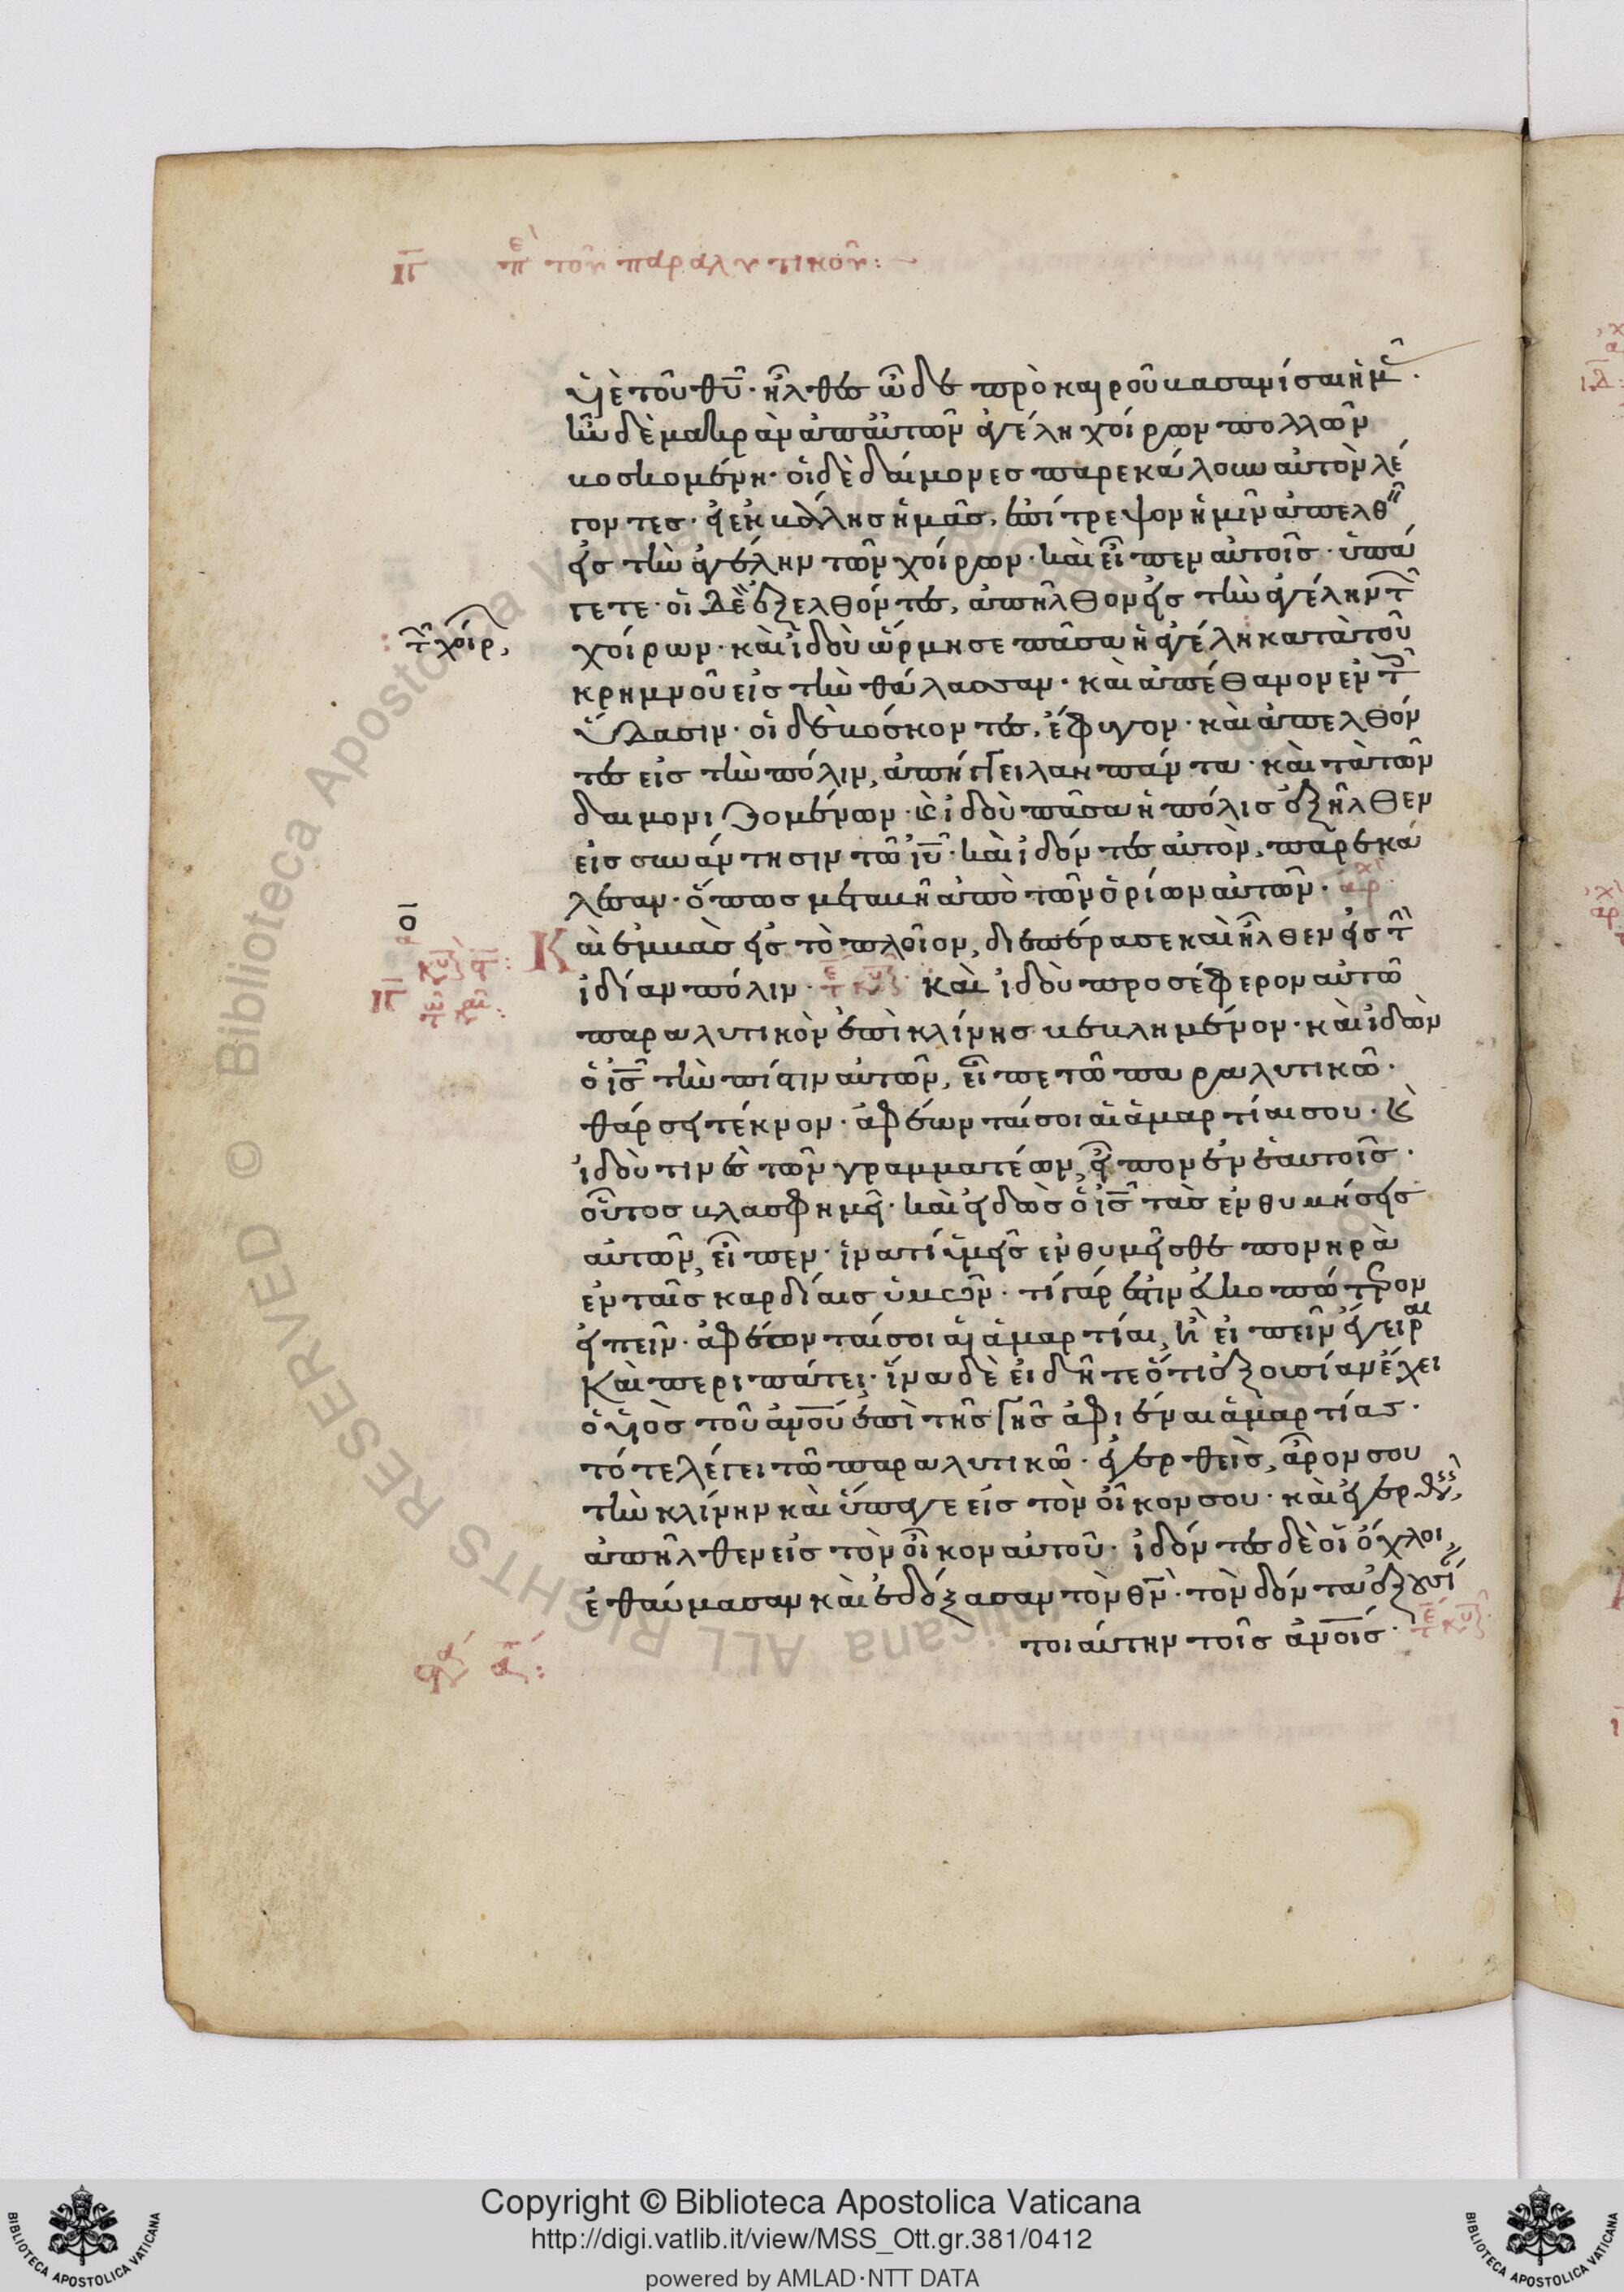 ιγ πε τοῦ παραλυτικοῦ:
ὑιὲ τοῦ θυ̅· ἦλθες ὧδε πρὸ καιροῦ βασανίσαι ἡμᾶ·
ἦν δὲ μακρὰν ἀπαὐτῶν ἀγέλη χοίρων πολλῶν
βοσκομένη· οἱ δὲ δαίμονες παρεκάλουν αὐτὸν λέ
γοντες· εἰ ἐκβάλλης ἡμᾶς, ἐπίτρεψον ἡμῖν ἀπελθ
εἰς τὴν ἀγέλην τῶν χοίρων· καὶ εἶπεν αὐτοῖς· ὑπά
γετε· οἱ δὲ ἐξελθόντες, ἀπῆλθον εἰς τὴν ἀγέλην τ
τ χοίρ
χοίρων· καὶ ἰδοὺ ὥρμησε πᾶσα ἡ ἀγέλη κατὰ τοῦ
κρημνοῦ εἰς τὴν θάλασσαν· καὶ ἀπέθανον ἐν τ
ὕδασιν· οἱ δὲ βόσκοντες, ἔφυγον· καὶ ἀπελθόν
τες εἰς τὴν πόλιν, ἀπήγγειλαν πάντα· καὶ τὰ τῶν
δαιμονιζομένων· κὲ ἰδοὺ πᾶσα ἡ πόλις ἐξῆλθεν
εἰς συνάντησιν τῶ ιυ̅· καὶ ἰδόντες αὐτὸν, παρεκά
λεσαν· ὅπως μεταβῆ ἀπὸ τῶν ὁρίων αὐτῶν· ἀρχ
Καὶ ἐμβὰς εἰς τὸ πλοῖον, διεπέρασε καὶ ἦλθεν εἰς τ
ἰδίαν πόλιν· καὶ ἰδοὺ προσέφερον αὐτῶ
παραλυτικὸν ἐπὶ κλίνης βεβλημένον· καὶ ἰδὼν
ὁ ις̅ τὴν πίστιν αὐτῶν, εἶπε τῶ παραλυτικῶ·
θάρσει τέκνον· ἀφέωνταί σοι αἱ ἁμαρτίαι σου· κὲ
ἰδού τινες τῶν γραμματέων, εἶπον ἐν ἑαυτοῖς·
οὗτος βλασφημεῖ· καὶ εἰδὼς ὁ ις̅ τὰς ἐνθυμήσεις
αὐτῶν, εἶπεν· ἱνατί ὑμεῖς ἐνθυμεῖσθε πονηρὰ
ἐν ταῖς καρδίαις ὑμῶν· τί γάρ ἐστιν εὐκοπώτερον
εἰπεῖν· ἀφέωνταί σοι αἱ ἁμαρτίαι, ἢ εἰπεῖν ἔγειραι
καὶ περιπάτει· ἵνα δὲ εἰδῆτε ὅτι ἐξουσίαν ἔχει
ὁ υἱὸς τοῦ ανου̅ ἐπὶ τῆς γῆς ἀφιέναι ἁμαρτίας·
τότε λέγει τῶ παραλυτικῶ· ἐγερθεὶς, ἆρον σου
τὴν κλίνην καὶ ὕπαγε εἰς τὸν οἶκον σου· καὶ ἐγερθεὶς,
ἀπῆλθεν εἰς τὸν οἶκον αὐτοῦ· ἰδόντες δὲ οἱ ὄχλοι,
ἐθαύμασαν καὶ ἐδόξασαν τὸν θν̅· τὸν δόντα ἐξουσί
τοιαύτην τοῖς ανοις̅·
Copyright © Biblioteca Apostolica Vaticana
http://digi.vatlib.it/view/MSS_Ott.gr.381/0412
powered by AMLAD·NTT DATA